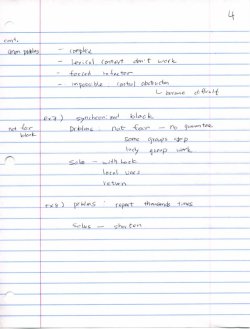 4
cont.
- complex
- lexical context don't work
- forced refactor
- impossible control abstraction
↳ become difficult
ex 7.) synchronized block
not fair block
Problems: not fair - no guarantee
some groups
lady group work
Solu - with Lock
local vars
return
ex 8) problems: repeat thousands times
Solus - shorten